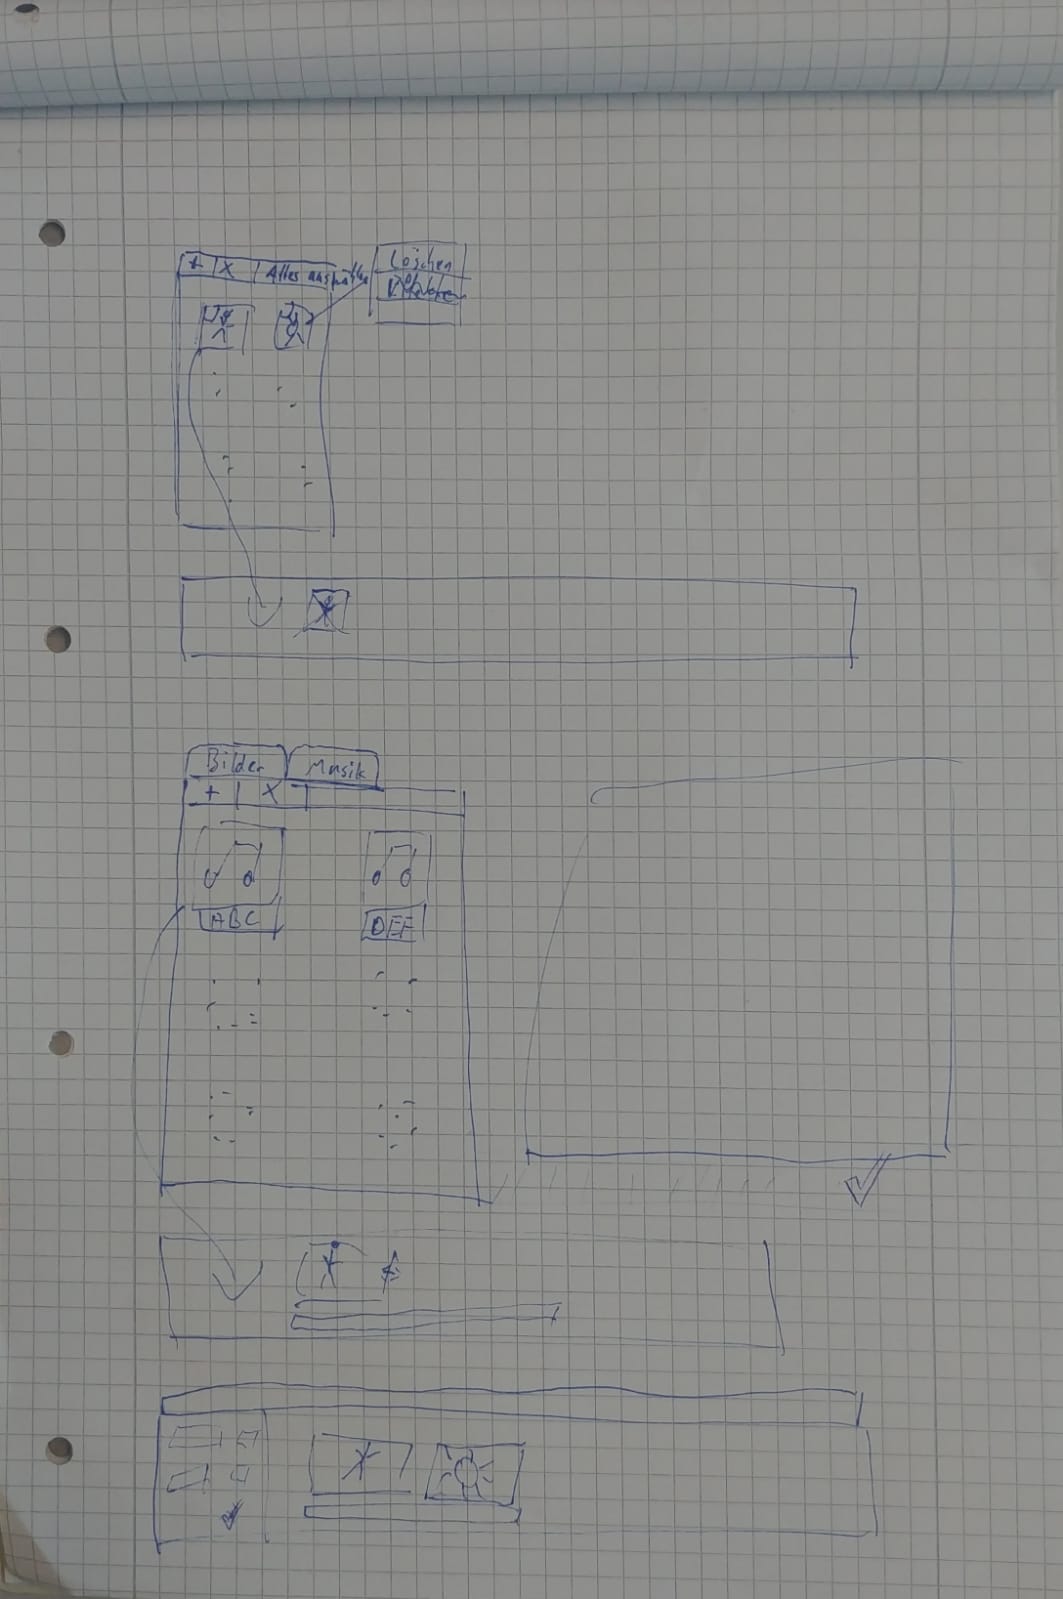 + X Alles auswählen
Löschen
Bilder Musik
+ X
ABC DEF